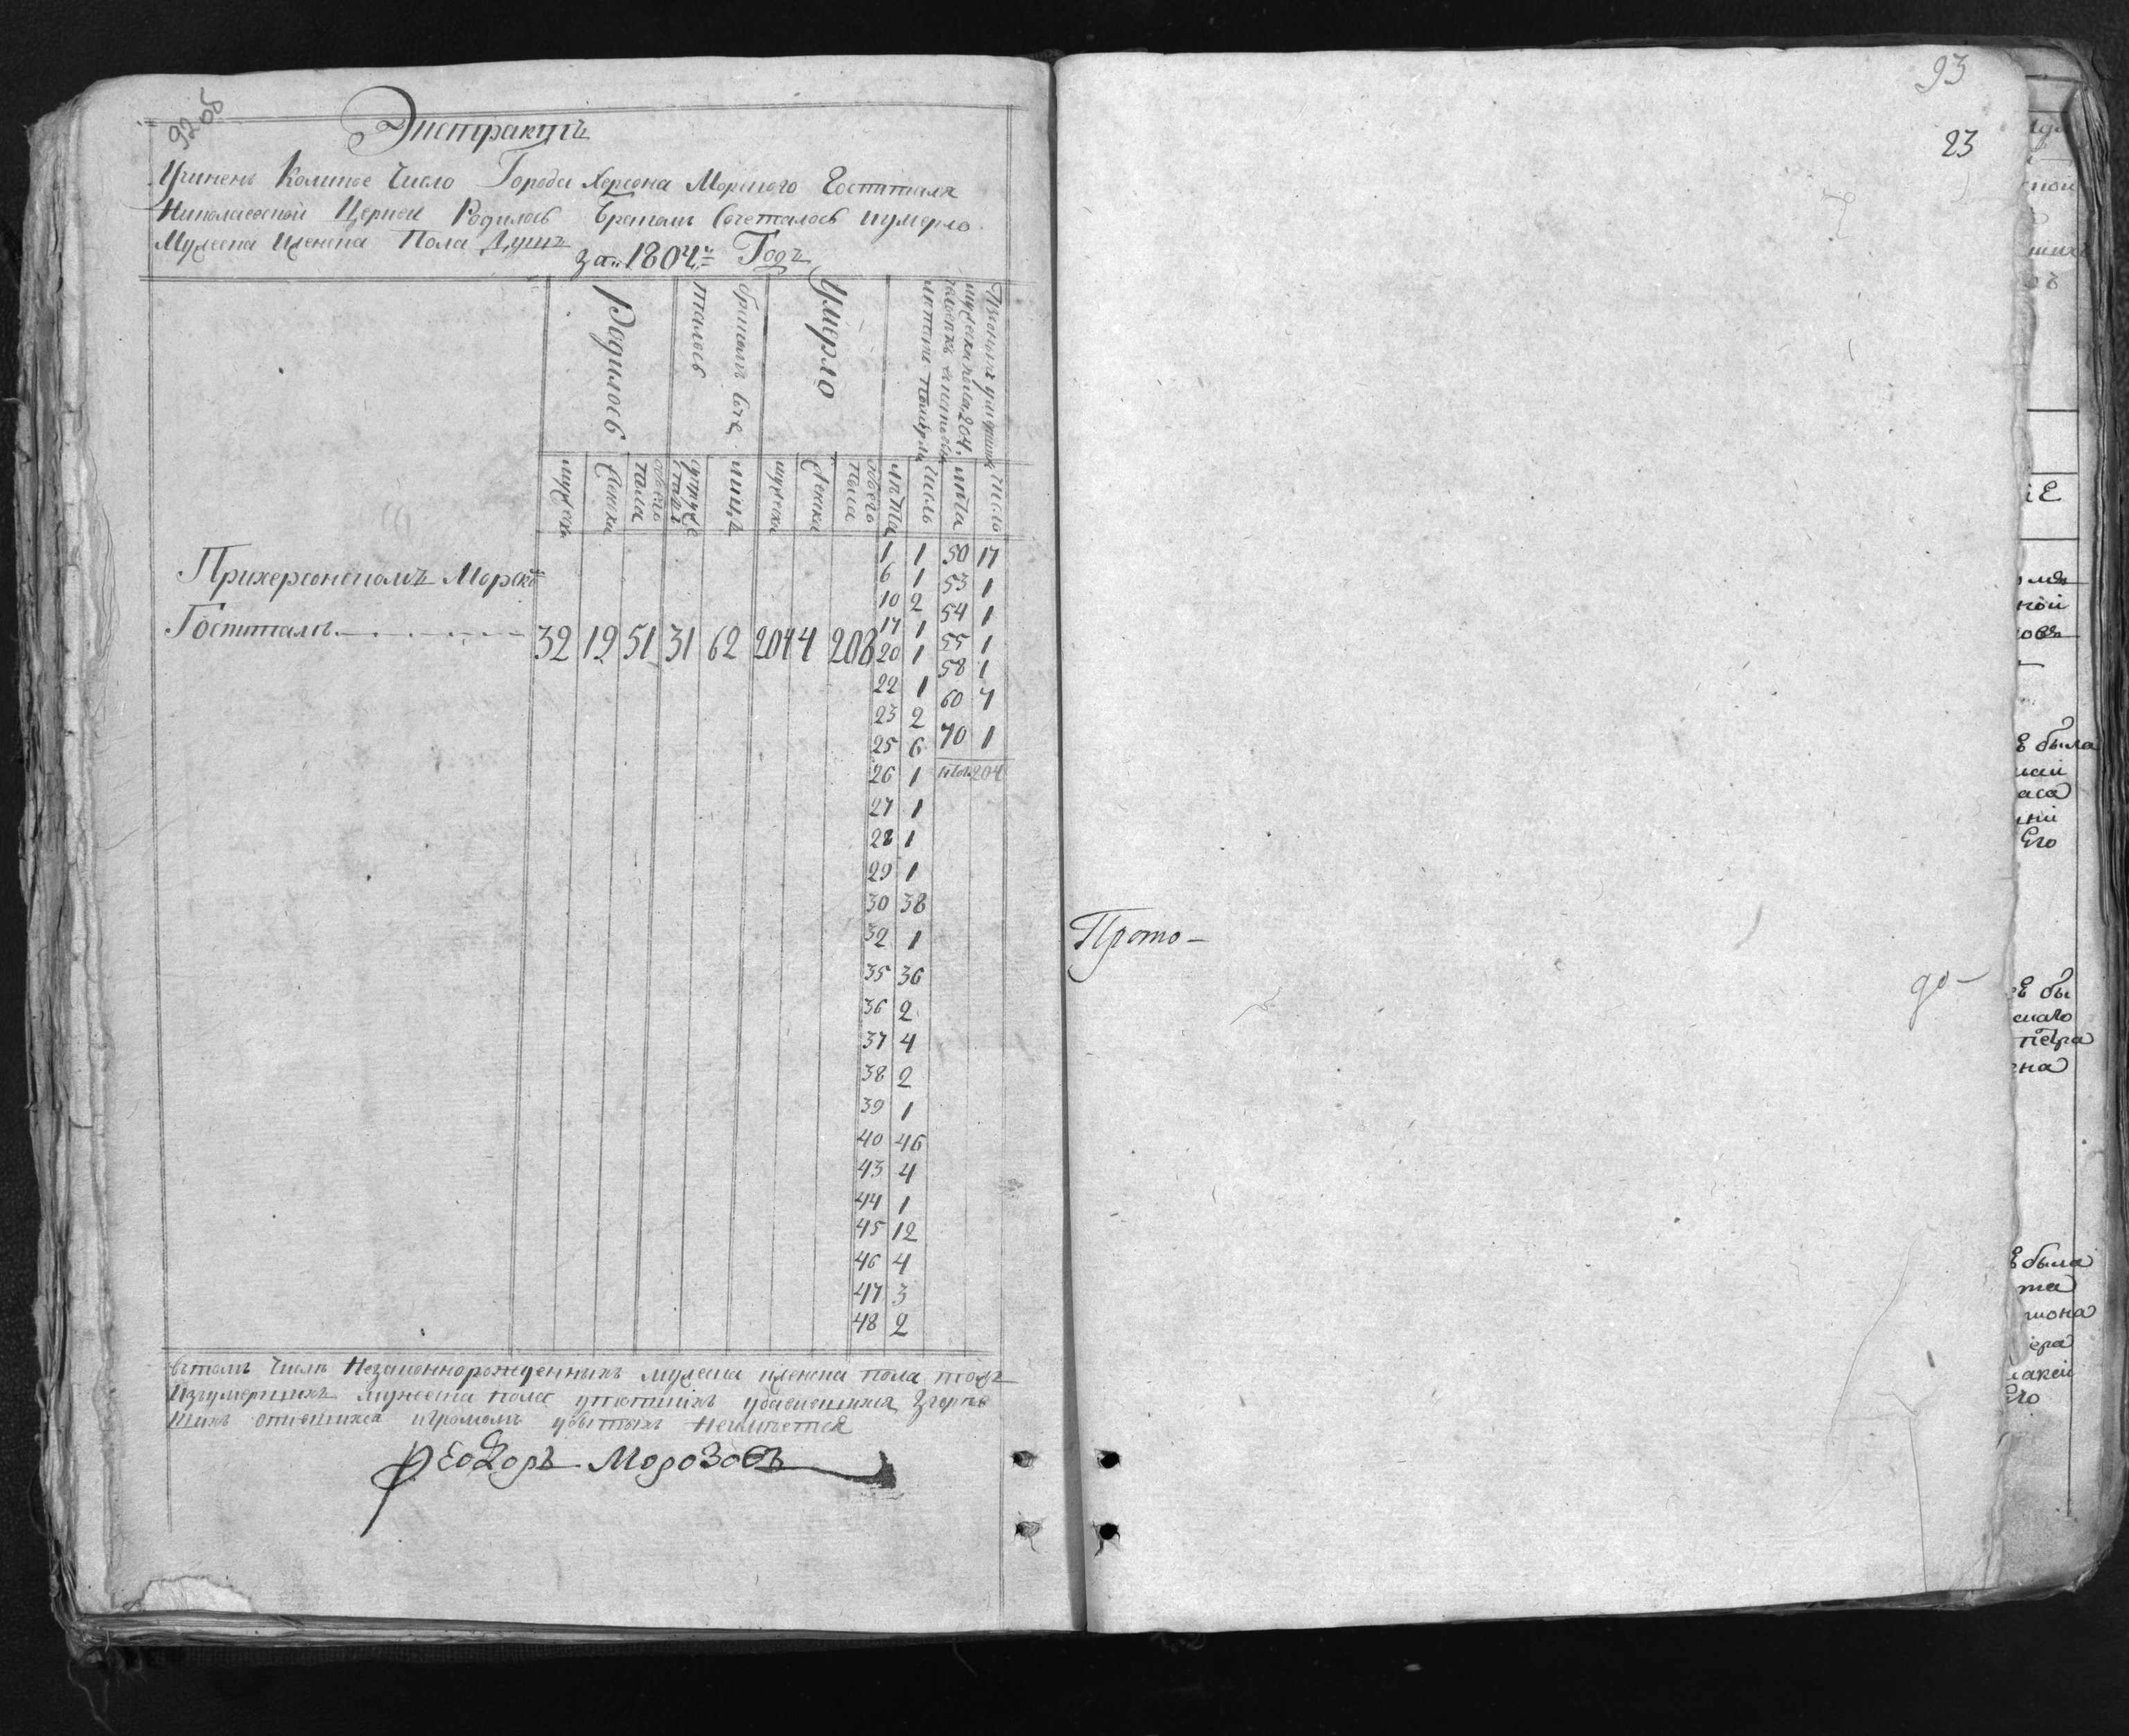 92об
Экстрактъ
Учиненъ Коликое Число Города Херсона Морского Гостпиталя
Николаевской Церкви Родилось Бракомъ Сочеталось иумерло
Мужеска Иженска Пола Душъ
за 1804й Годъ
Родилось
бракомъ соче
талось
Умерло
Изоныхъ умершихъ
мужеска пола 204.
человекъ
летъ Померли
мужеска
Женска
обоего
пола
супруже
лицъ
мужеска
Женска
обоего
пола
лѣта
Число
лѣта
Число
Прихерсонскомъ Морско
Гостпиталѣ 32 19 51 31 62 204 4 208
1 1 50 17
6 1 53 1
10 2 54 1
17 1 55 1
20 1 58 1
22 1 60 7
23 2 70 1
25 6 204
26 1
27 1
28 1
29 1
30 38
32 1
35 36
36 2
37 4
38 2
39 1
40 46
43 4
44 1
45 12
46 4
47 3
48 2
Втомъ Числѣ Незаконнорожденныхъ мужеска иженска пола
Изумершихъ мужеска пола
опившихся игромомъ убитыхъ Неимѣется
Феодоръ Морозовъ
93
23
Прото-
до-
ной
ѣ была
Его
Петра
ена
ѣ была
Его